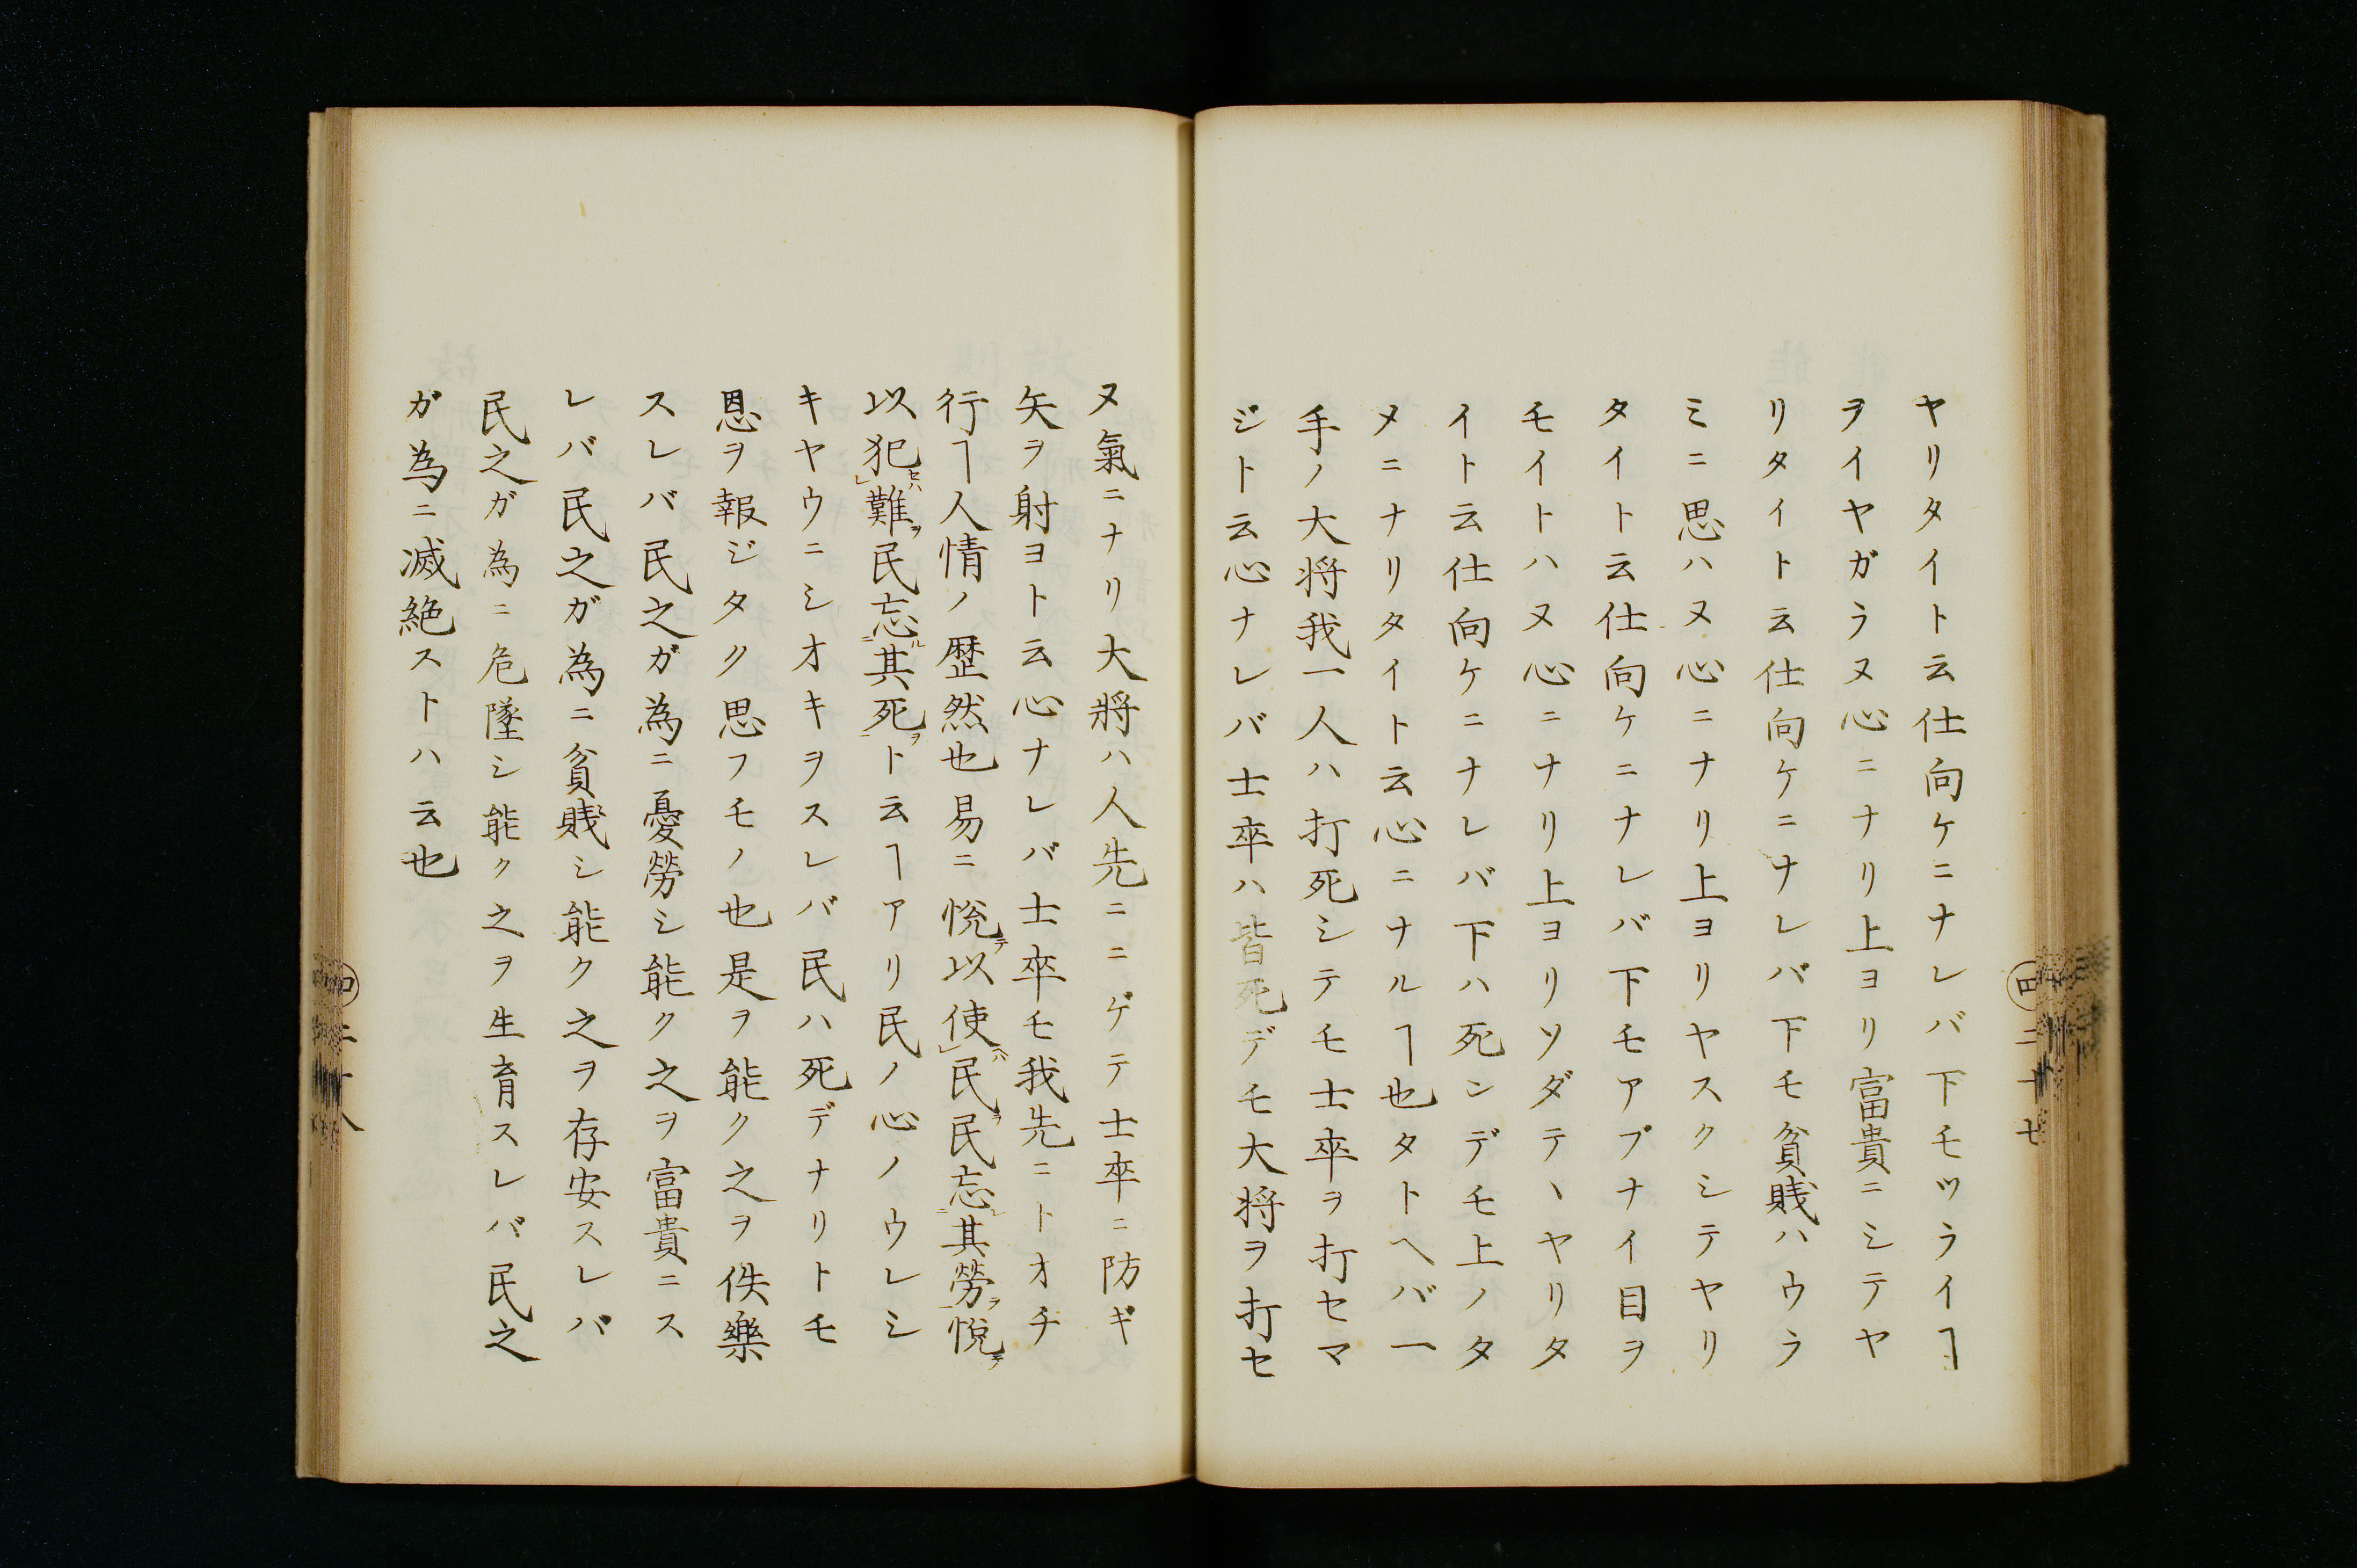 ヤリタイト云仕向ケニナレバ下モツライヿ
ヲイヤガラヌ心ニナリ上ヨリ富貴ニシテヤ
リタイト云仕向ケニナレバ下モ貧賎ハウラ
ミニ思ハヌ心ニナリ上ヨリヤスクシテヤリ
タイト云仕向ケニナレバ下モアブナイ目ヲ
モイトハヌ心ニナリ上ヨリソダテヽヤリタ
イト云仕向ケニナレバ下ハ死ンデモ上ノタ
メニナリタイト云心ニナルヿ也タトヘバ一
手ノ大将我一人ハ打死シテモ士卒ヲ打セマ
ジト云心ナレバ士卒ハ皆死デモ大将ヲ打セ
ヌ氣ニナリ大將ハ人先ニニゲテ士卒ニ防ギ
矢ヲ射ヨト云心ナレバ士卒モ我先ニトオチ
行ヿ人情ノ歴然也易ニ悦テ以使ヘハレ民ヲ民忘ル二其勞ヲ一悦テ
以犯セハレ難ヲ民忘ル二其死ヲ一ト云ヿアリ民ノ心ノウレシ
キヤウニシオキヲスレバ民ハ死デナリトモ
恩ヲ報ジタク思フモノ也是ヲ能ク之ヲ佚樂
スレバ民之ガ為ニ憂勞シ能ク之ヲ富貴ニス
レバ民之ガ為ニ貧賎シ能ク之ヲ存安スレバ
民之ガ為ニ危墜シ能ク之ヲ生育スレバ民之
ガ為ニ滅絶ストハ云也
四 二十七
四 二十八